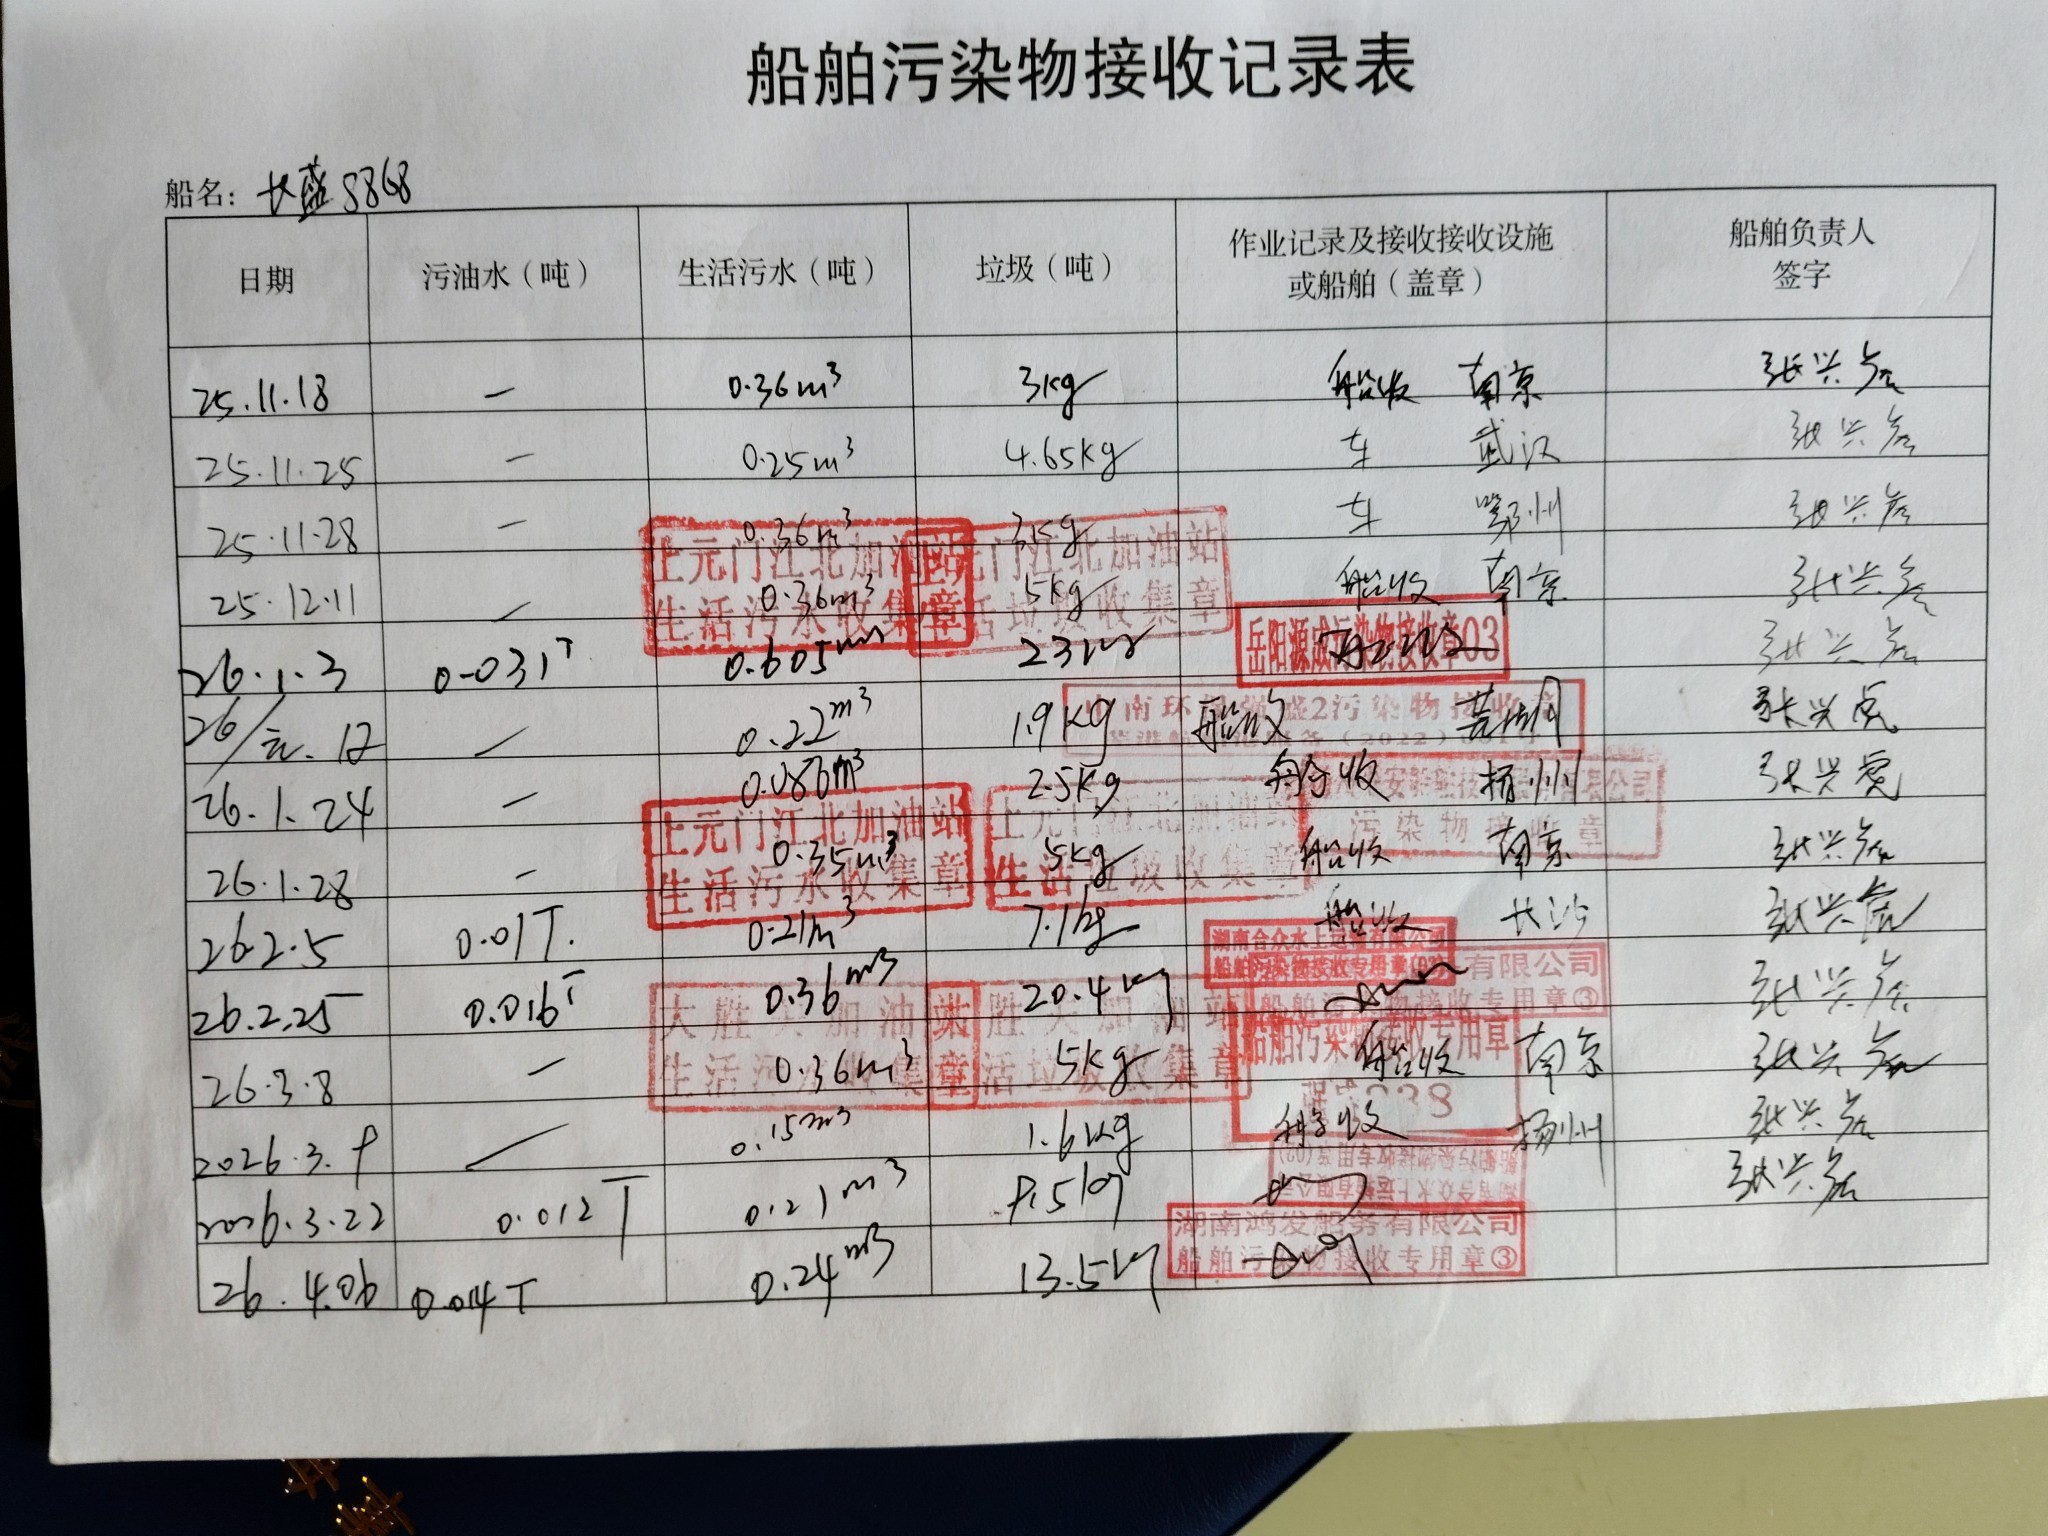 船舶污染物接收记录表
船名: 长盛 8868
日期 污油水（吨） 生活污水（吨） 垃圾（吨） 作业记录及接收接收设施或船舶（盖章） 船舶负责人签字
25.11.18 — 0.36m³ 3kg 船收 南京 张兴
25.11.25 — 0.25m³ 4.65kg 车 武汉 张兴
25.11.28 — 0.36m³ 3kg 车 鄂州 张兴
25.12.11 — 0.36m³ 5kg 船收 南京 张兴
上元门江北加油站
生活污水收集章
上元门江北加油站
生活垃圾收集章
26.1.3 0.031T 0.605m³ 23 张兴
岳阳源 污染物接收章03
26/元.12 — 0.22m³ 1.9kg 船收 张兴
2污染物接收章
26.1.24 — 0.086m³ 2.5kg 船收 扬州 张兴
有限公司
污染物接收章
26.1.28 — 0.35m³ 5kg 船收 南京 张兴
上元门江北加油站
生活污水收集章
上元门江北加油站
生活垃圾收集章
26.2.5 0.01T. 0.21m³ 7.1kg 船收 长沙 张兴
湖南合众水上 有限公司
船舶污染物接收专用章
26.2.25 0.016T 0.36m³ 20.4kg 张兴
有限公司
船舶污染物接收专用章③
26.3.8 — 0.36m³ 5kg 船收 南京 张兴
大胜关加油站
生活污水收集章
大胜关加油站
生活垃圾收集章
船舶污染物接收专用章
2026.3.9 — 0.15m³ 1.6kg 船收 扬州 张兴
2026.3.22 0.012T 0.21m³ 9.5kg 张兴
26.4.06 0.014T 0.24m³ 13.5kg
湖南鸿发船务有限公司
船舶污染物接收专用章③